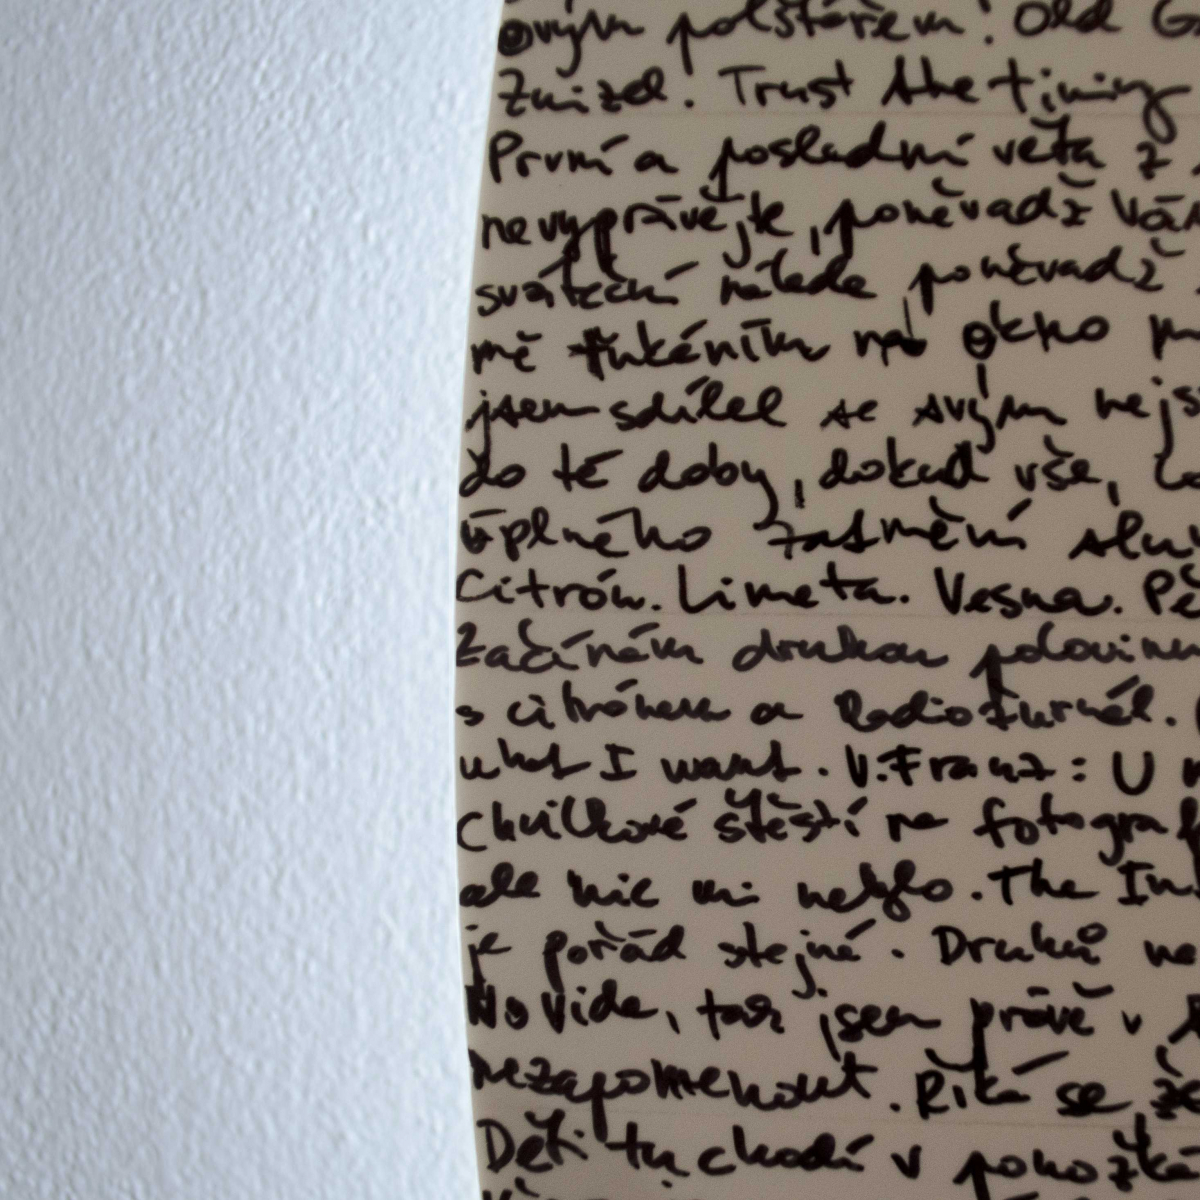 ovým polštářem! Old
Zmizel. Trust the timing
První a poslední věta z
nevyprávějte, poněvadž
sváteční náladě poněvadž
mě ťukáním na okno
jsem sdílel se svým
do té doby, dokud vše,
úplného zatmění
Citrón. Limeta. Vesna.
Začínám druhou
s citrónem a Radiožurnál.
what I want. V. Franz: U
chvilkové štěstí na
ale nic mi nebylo. The
je pořád stejné. Druhů
No vida, tak jsem právě v
nezapomenout. Říká se
Děti tu chodí v